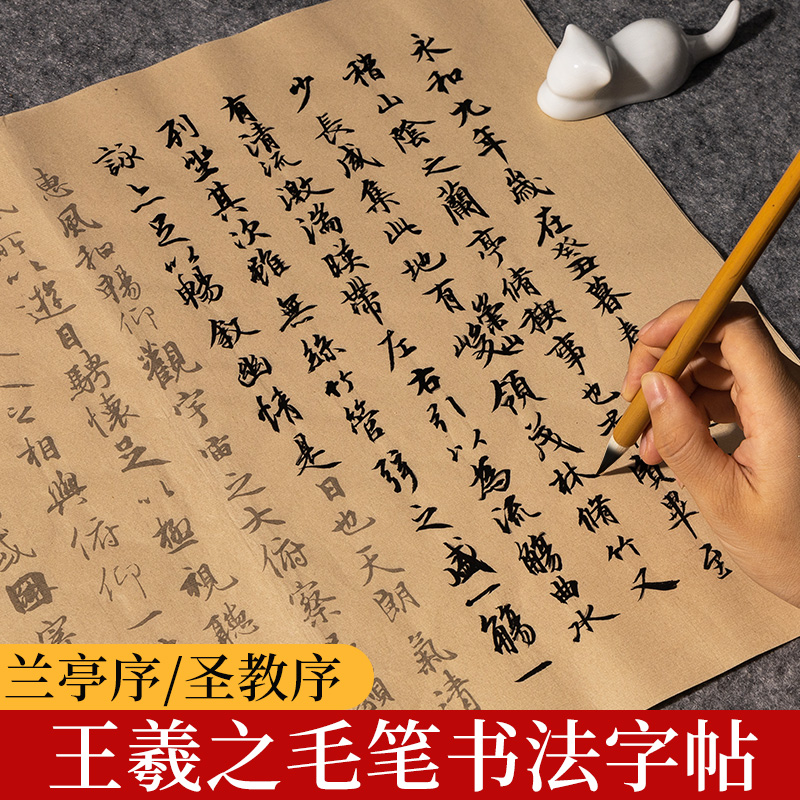 永和九年歲在癸丑暮春
稽山陰之蘭亭脩禊事也 賢畢至
少長咸集此地有崇山峻領茂林脩竹又
有清流激湍暎帶左右引以為流觴曲水
列坐其次雖無絲竹管弦之盛一觴一
詠亦足以暢敘幽情是日也天朗氣清
惠風和暢仰觀宇宙之大俯察
所以遊目騁懷足以極視聽
相與俯仰一
或因
兰亭序/圣教序
王羲之毛笔书法字帖